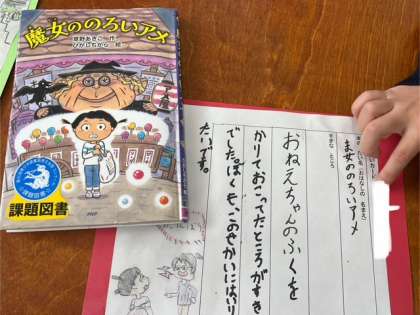 魔女ののろいアメ
草野あきこ 作
ひがしちから 絵
課題図書
PHP
ま女ののろいアメ
すきな ところ
おねえちゃんのふくを
かりておこってたところがすき
でした。ぼくも、このせかいにはいり
たいです。